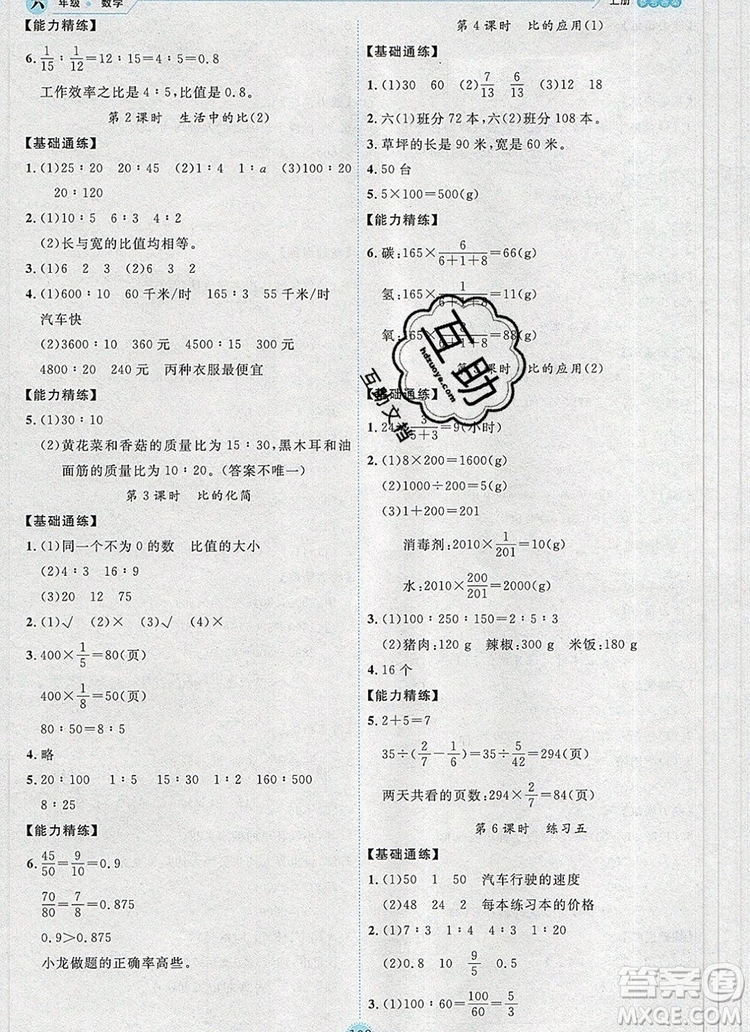 六 年级 · 数学
上册
【能力精练】
6. 1/15∶1/12=12∶15=4∶5
工作效率之比是 4∶5,比值是 0.8。
第 2 课时 生活中的比(2)
【基础通练】
1. (1)25∶20 20∶44 (2)1∶4 1∶a (3)100∶20
20∶120
2. (1)10∶5
(2)长与宽的比值均相等。
3. (1)6 2 3 (2)3 6 2
4. (1)600∶10 60 千米/时 165∶3 55 千米/时
汽车快
(2)3600∶15 240 元 5000∶25 200 元
4800∶20 240 丙种衣服最便宜
【能力精练】
5. (1)30∶10
(2)黄花菜和香菇的质量比为 15∶30,黑木耳和油
面筋的质量比为 10∶8。(答案不唯一)
第 3 课时 比的化简
【基础通练】
1. (1)同一个不为 0 的数 比值的大小
(2)4∶3 16∶9
(3)20 12 75
2. (1)√ (2)× (3)√ (4)×
3. 400×1/5=80(页)
400×1/8=50(页)
80∶50=8∶5
4. 略
5. 20∶100 1∶5 15∶30 1∶2 160∶500
8∶25
【能力精练】
6. 45/50=9/10=0.9
70/80=7/8=0.875
0.9>0.875
小龙做题的正确率高些。
第 4 课时 比的应用(1)
【基础通练】
1. (1)30 60 (2)7/13 6/13 (3)12 18
2. 六(1)班分 72 本,六(2)班分 108 本。
3. 草坪的长是 90 米,宽是 60 米。
4. 50 台
5. 5×100=500(g)
【能力精练】
6. 碳:165×6/(6+1+8)=66(g)
氢:165×1/(6+1+8)=11(g)
氧:165×8=88(g)
课时 比的应用(2)
【基础通练】
1. 24×3/(5+3)=9(小时)
2. (1)8×200=1600
(2)1000÷200=5(g)
(3)1+200=201
消毒剂:2010×1/201=10(g)
水:2010×200/201=2000(g)
3. (1)100∶250∶150=2∶5∶3
(2)猪肉:120 g 辣椒:300 g 米饭:180 g
4. 16 个
【能力精练】
5. 2+5=7
35÷(2/7-1/6)=35÷5/42=294(页)
两天共看的页数:294×2/7=84(页)
第 6 课时 练习五
【基础通练】
1. (1)50 1 50 汽车行驶的速度
(2)48 24 2 每本练习本的价格
2. (1)7∶3 1∶4 4∶1 1∶20
(2)0.8 10 9/5 5
3. (1)100∶1=100
互助
hdzuoye.com
互助文档
答案圈
MXQE.COM